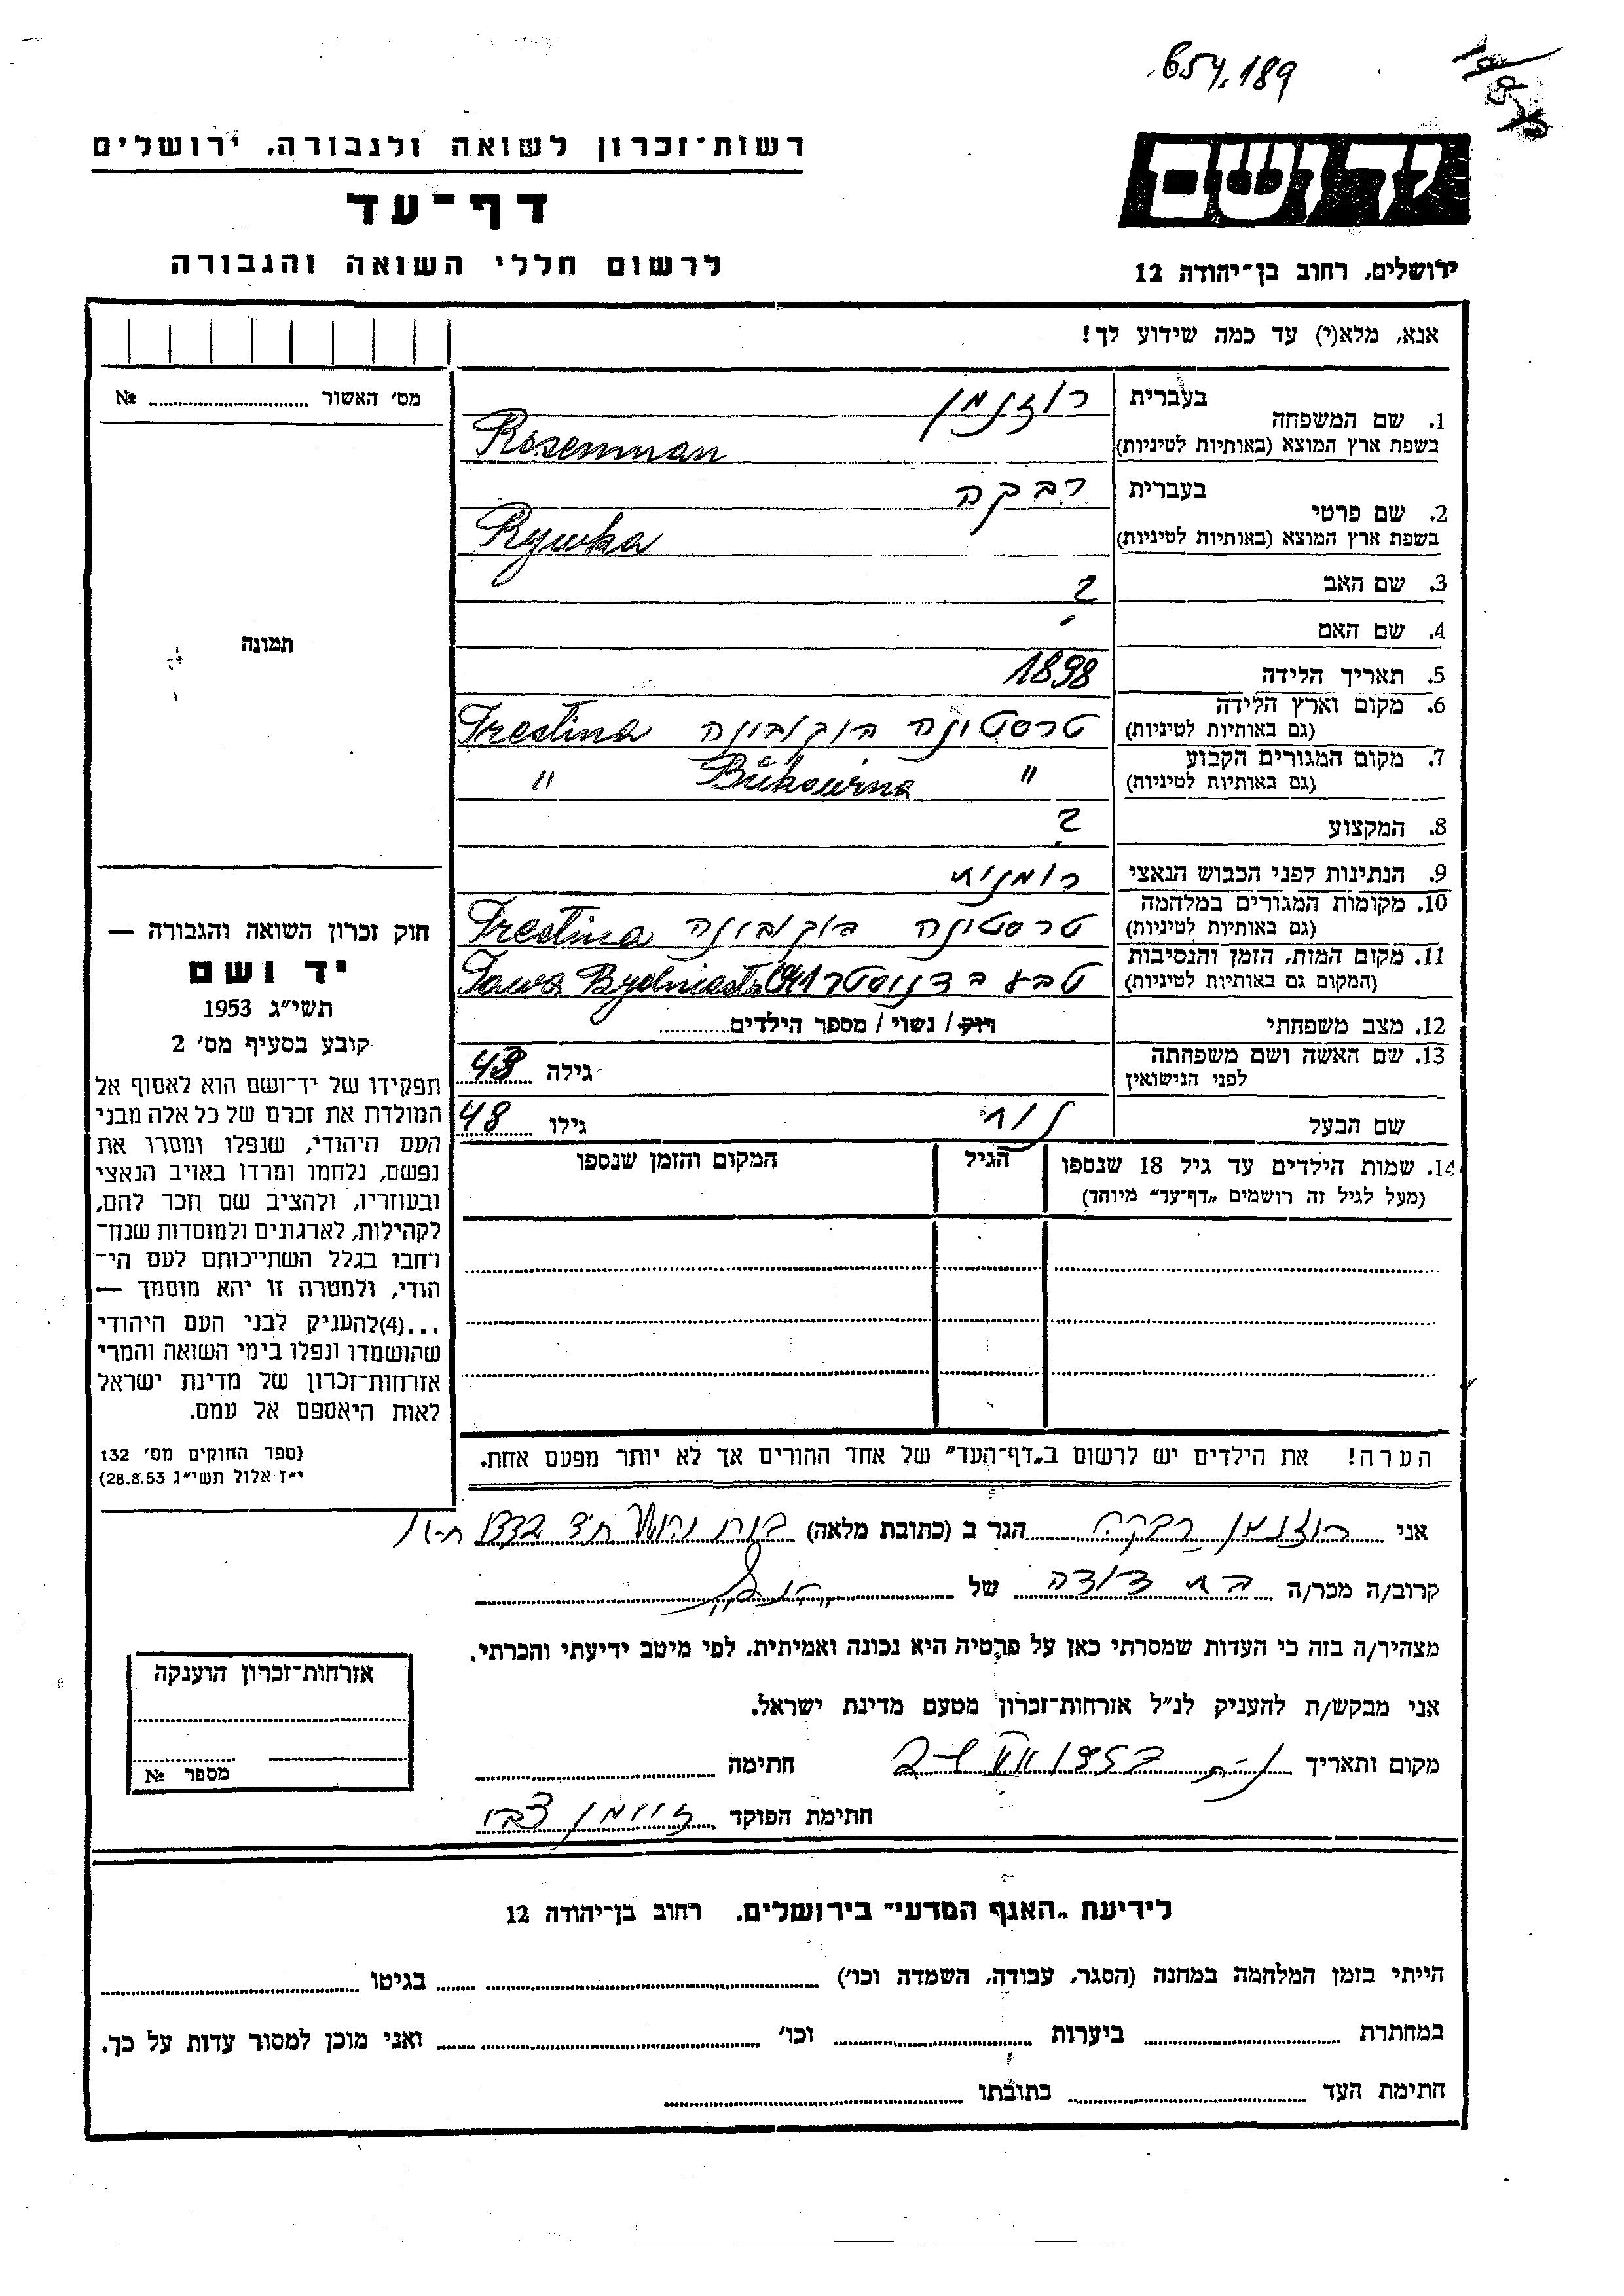 654.189
רשות־זכרון לשואה ולגבורה, ירושלים
יד ושם
דף־עד
לרשום חללי השואה והגבורה
ירושלים, רחוב בן־יהודה 12
אנא, מלא(י) עד כמה שידוע לך!
מס׳ האשור № 
בעברית רוזנמן
1. שם המשפחה
בשפת ארץ המוצא (באותיות לטיניות) Rosenman
בעברית רבקה
2. שם פרטי
בשפת ארץ המוצא (באותיות לטיניות) Rywka
3. שם האב ?
4. שם האם
תמונה
5. תאריך הלידה 1898
6. מקום וארץ הלידה
(גם באותיות לטיניות) טרסטינה בוקובינה Trestina
7. מקום המגורים הקבוע
(גם באותיות לטיניות) " Bukowina "
8. המקצוע ?
9. הנתינות לפני הכבוש הנאצי רומנית
10. מקומות המגורים במלחמה
(גם באותיות לטיניות) טרסטינה בוקובינה Trestina
11. מקום המות, הזמן והנסיבות
(המקום גם באותיות לטיניות) טבע בדניסטר 1941
12. מצב משפחתי רווק / נשוי / מספר הילדים
13. שם האשה ושם משפחתה
לפני הנישואין גילה 43
שם הבעל גילו 48
14. שמות הילדים עד גיל 18 שנספו הגיל המקום והזמן שנספו
(מעל לגיל זה רושמים „דף־עד” מיוחד)
חוק זכרון השואה והגבורה —
יד ושם
תשי״ג 1953
קובע בסעיף מס׳ 2
תפקידו של יד־ושם הוא לאסוף אל
המולדת את זכרם של כל אלה מבני
העם היהודי, שנפלו ומסרו את
נפשם, נלחמו ומרדו באויב הנאצי
ובעוזריו, ולהציב שם וזכר להם,
לקהילות, לארגונים ולמוסדות שנח־
רחבו בגלל השתייכותם לעם הי־
הודי, ולמטרה זו יהא מוסמך —
...(4)להעניק לבני העם היהודי
שהושמדו ונפלו בימי השואה והמרי
אזרחות־זכרון של מדינת ישראל
לאות היאספם אל עמם.
(ספר החוקים מס׳ 132
י״ז אלול תשי״ג 28.8.53)
הערה! את הילדים יש לרשום ב„דף־העד” של אחד ההורים אך לא יותר מפעם אחת.
אני רוזנמן רבקה הגר ב (כתובת מלאה)
קרוב/ה מכר/ה בת דודה של
מצהיר/ה בזה כי העדות שמסרתי כאן על פרטיה היא נכונה ואמיתית, לפי מיטב ידיעתי והכרתי.
אני מבקש/ת להעניק לנ״ל אזרחות־זכרון מטעם מדינת ישראל.
מקום ותאריך חתימה
חתימת הפוקד
אזרחות־זכרון הוענקה
מספר №
לידיעת „האגף המדעי” בירושלים, רחוב בן־יהודה 12
הייתי בזמן המלחמה במחנה (הסגר, עבודה, השמדה וכו׳) בגיטו
במחתרת ביערות וכו׳ ואני מוכן למסור עדות על כך.
חתימת העד כתובתו